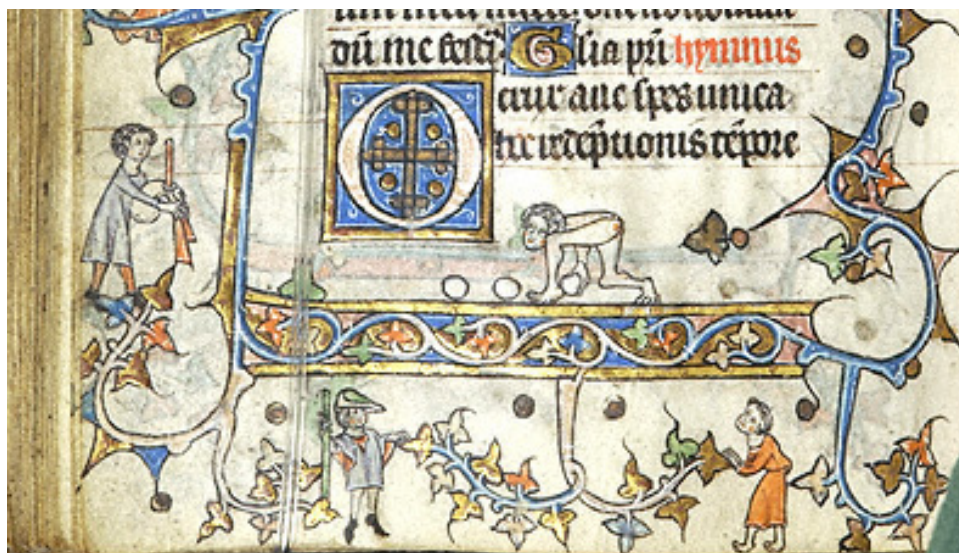 dū me festī Glīa prī hymnus
O crux aue spes unica
hoc redēptionis tēpore